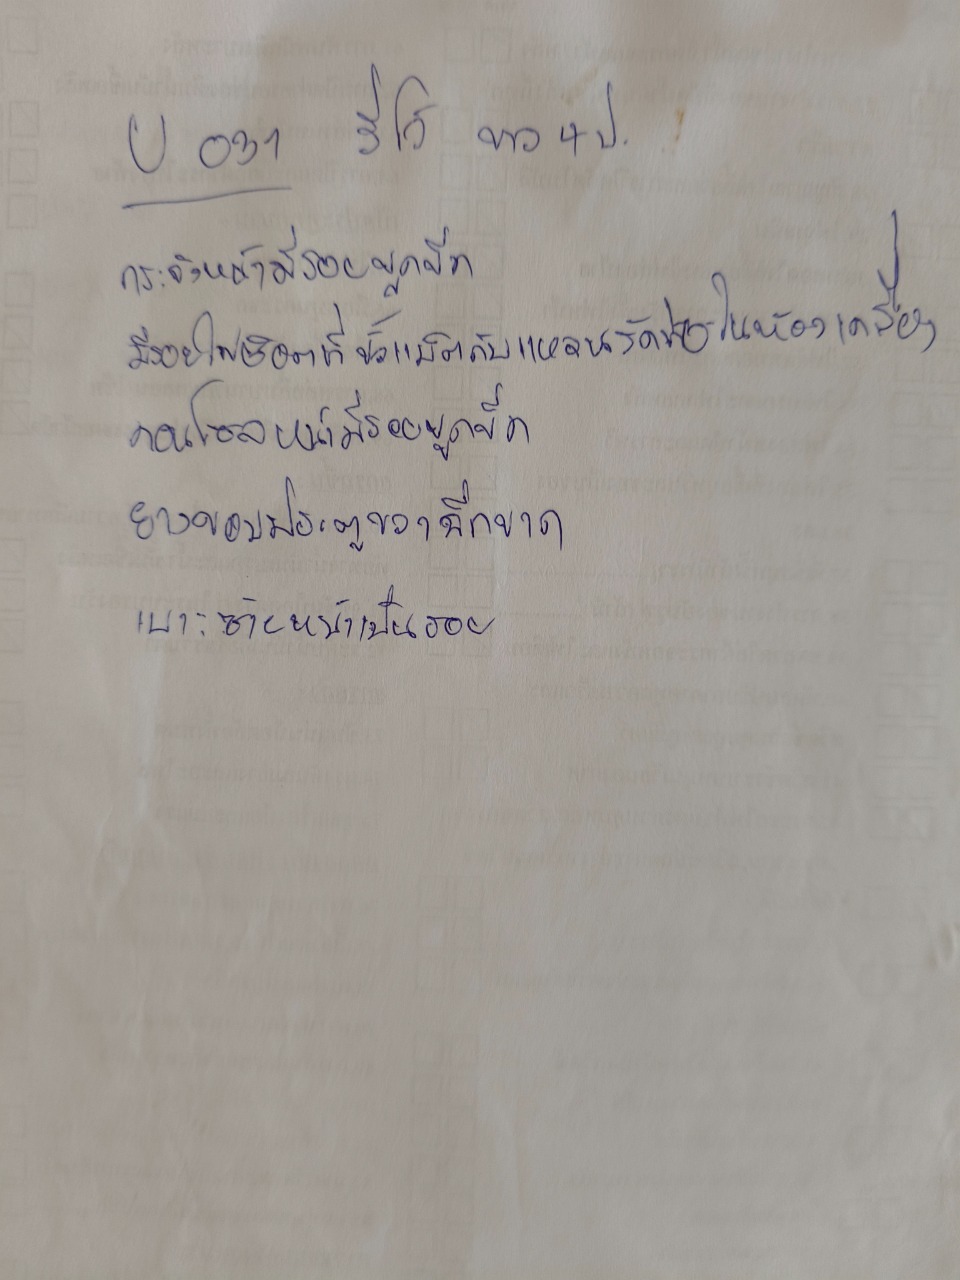 U 031 รีโว่ ขาว 4 ป.
กระจังหน้ามีรอยขูดขีด
มีรอยไฟช๊อตที่ขั้วแบ๊ตกับแหวนรัดท่อในห้องเครื่อง
คอนโซลหน้ามีรอยขูดขีด
ยางขอบประตูขวาฉีกขาด
เบาะซ้ายหน้าเป็นรอย